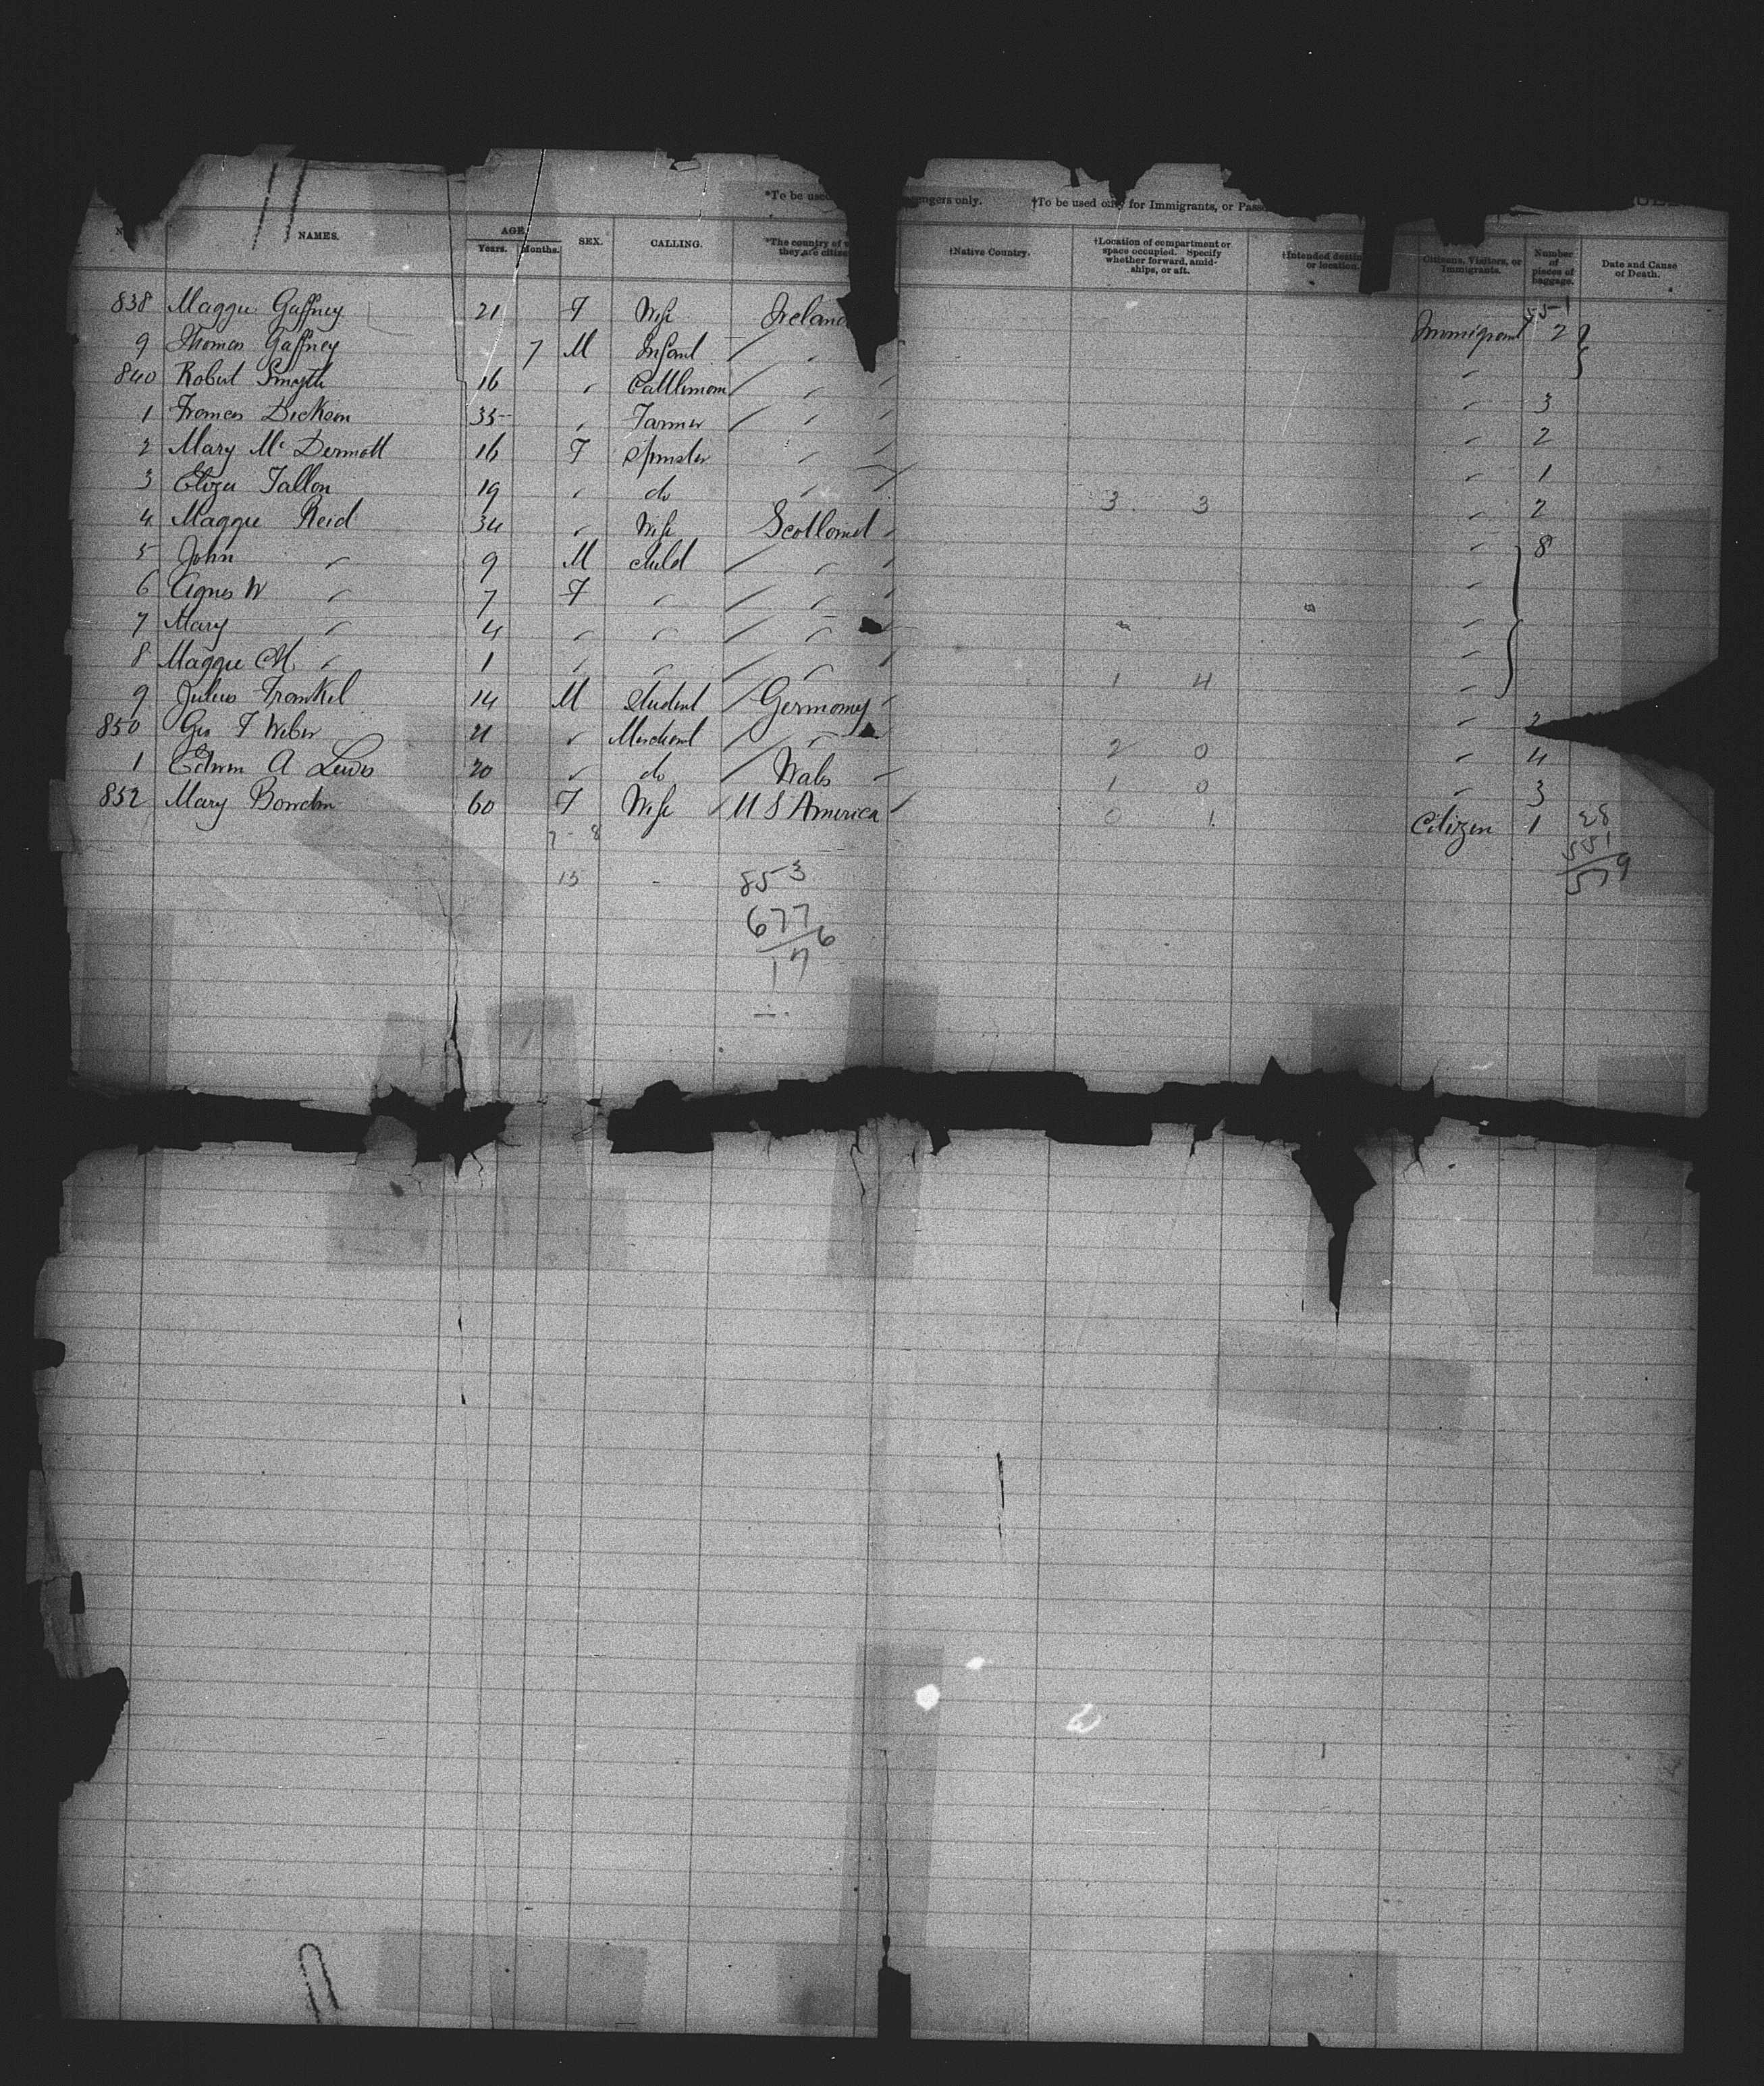 11
*To be used ngers only. †To be used only for Immigrants, or Pass
NAMES. AGE. Years. Months. SEX. CALLING. *The country of they are citize †Native Country. †Location of compartment or space occupied. Specify whether forward, amid-ships, or aft. †Intended destin or location. Citizens, Visitors, or Immigrants. Number of pieces of baggage. Date and Cause of Death.
551
838 Maggie Gaffney 21 F Wife Ireland Immigrant 2
9 Thomas Gaffney 7 M Infant " "
840 Robert Smyth 16 " Cattleman " " 3
1 Frances Dickson 35 " Farmer " " 2
2 Mary Mc Dermott 16 F Spinster " " 1
3 Eliza Fallon 19 " do " 3 3 " 2
4 Maggie Reid 34 " Wife Scotland " 8
5 John " 9 M Child " "
6 Agnes W " 7 F " " "
7 Mary " 4 " " " "
8 Maggie M " 1 " " " 1 4 "
9 Julius Frankel 14 M Student Germany " 2
850 Geo F Weber 21 " Merchant " 2 0 " 4
1 Edwin A Lewis 20 " do Wales 1 0 " 3
852 Mary Bowden 60 F Wife U S America 0 1 Citizen 1 28
7 - 8 551
15 - 853 579
677
176